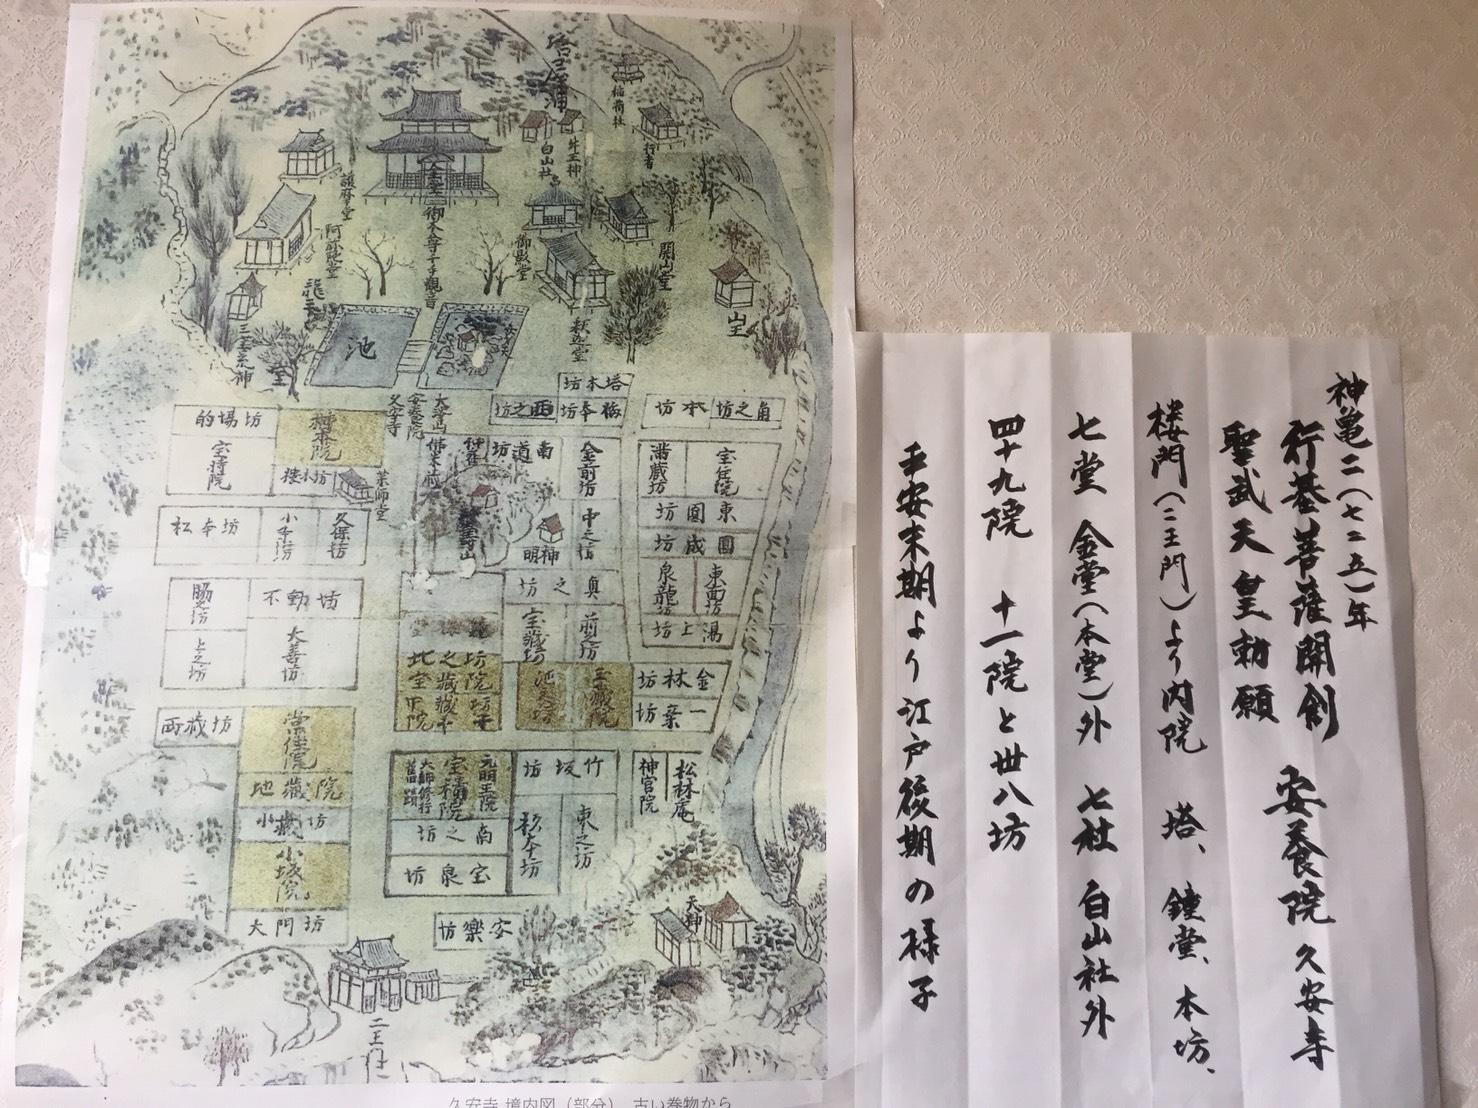 塔尾神
稲荷社
行者
牛王神
白山社
金堂
御本尊千手観音
護摩堂
阿弥陀堂
御影堂
開山堂
山王
釈迦堂
三宝荒神
池
塔本坊
的場坊
西之坊
梅本坊
角之坊
本坊
大澤山
安養院
久安寺
宝持院
薬師堂
南道坊
金前坊
潘蔵坊
宝住院
松本坊
久保坊
明神
中之坊
東圓坊
圓成坊
脇之坊
不動坊
奥之坊
泉龍坊
東面坊
上之坊
大善坊
宝蔵坊
前之坊
湯上坊
金林坊
一乗坊
西蔵坊
常住院
地蔵院
小蔵坊
小坂院
大門坊
大師修行旧蹟
宝積院
元明王院
竹坂坊
神宮院
松林庵
南之坊
杉本坊
東之坊
宝泉坊
安楽坊
天神
二王門
久安寺 境内図（部分） 古い巻物から
神亀二(七二五)年
行基菩薩開創 安養院 久安寺
聖武天皇勅願
楼門(二王門)より内院 塔、鐘堂、本坊、
七堂 金堂(本堂)外 七社 白山社外
四十九院 十一院と卅八坊
平安末期より江戸後期の様子